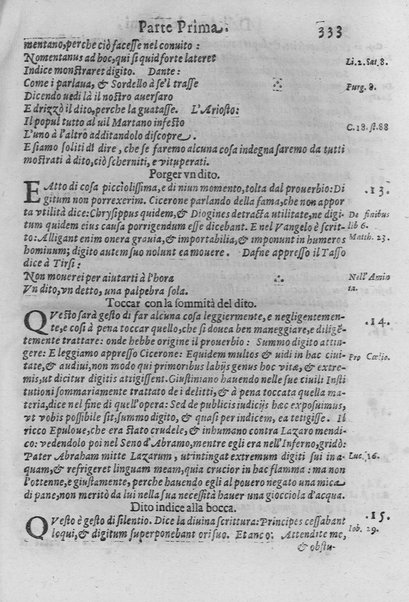 Parte Prima. 333
mentano, perche ciò facesse nel conuito:
Nomentanus ad hoc, qui si quid forte lateret Li. 2. Sat. 8.
Indice monstraret digito. Dante:
Come i parlaua, & Sordello à se'l trasse Purg. 8.
Dicendo uedi là il nostro auersaro
E drizzò il dito, perche la guatasse. L'Ariosto:
Il popul tutto al uil Martano infesto C. 18. st. 88
L'uno à l'altrò additandolo discopre.
E siamo soliti di dire, che se faremo alcuna cosa indegna saremo da tutti
mostrati à dito, ciò scherniti, e vituperati.
Porger vn dito.
EAtto di cosa picciolissima, e di niun momento, tolta dal prouerbio: Di .13.
gitum non porrexerim. Cicerone parlando della fama, che non appor
ta vtilità dice: Chrysippus quidem, & Diogines detracta utilitate, ne digi- De finibus
tum quidem eius causa porrigendum esse dicebant. E nel Vangelo è scrit- lib 6.
to: Alligant enim onera grauia, & importabilia, & imponunt in humeros Matth. 23.
hominum; digito autem suo nolunt ea mouere. Dafne appresso il Tasso
dice à Tirsi:
Non mouerei per aiutarti à l'hora Nell'Amin
Vn dito, vn detto, una palpebra sola. ta 12.
Toccar con la sommità del dito.
QVesto sarà gesto di far alcuna cosa leggiermente, e negligentemen- .14.
te, e così à pena toccar quello, che si douea ben maneggiare, e dili-
temente trattare: onde hebbe origine il prouerbio: Summo digito attin-
gere: E leggiamo appresso Cicerone: Equidem multos & uidi in hac ciui- Pro Caelio.
tate, & audiui, non modo qui primoribus labijs genus hoc vitæ, & extre-
mis, ut dicitur digitis attigissent. Giustiniano hauendo nelle sue ciuili Insti
tutioni sommariamente trattato de i delitti, & à pena toccata quella ma
teria, dice nel fine di quell'opera: Sed de publicis iudicijs hæc exposuimus,
vt vobis possibile sit, summo digito, & quasi per indicem, ea tetigisse. Il
ricco Epuloue, che era stato crudele, & inhumano contra Lazaro mendi-
co: vedendolo poi nel Seno d'Abramo, mentre egli era nell'Inferno, gridò:
Pater Abraham mitte Lazarum, ut intingat extremum digiti sui in a- Luc. 16.
quam, & refrigeret linguam meam, quia crucior in hac flamma: ma non
l'ottenne, e giustamente, perche hauendo egli al pouero negato una mica
di pane, non meritò da lui nella sua necessità hauer una gioccìola d'acqua.
Dito indice alla bocca.
QVesto è gesto di silentio. Dice la diuina scrittura: Principes cessabant .15.
loqui, & digitum superponebant ori suo. Et anco: Attendite me, Iob. 29.
& obstu-